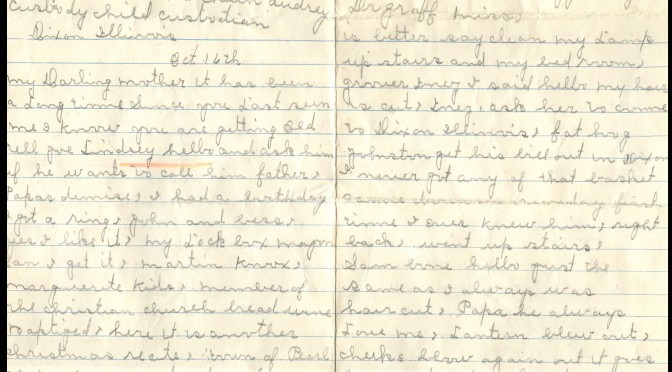 custody child custodian
Dixon Illinois
Oct 16th
my Darling mother it has been
a Long time since you Last seen
me I know you are getting old
tell joe Lindsey hello and ask him
if he wants to call him father,
Papas demise, I had a birthday
got a ring, john and bess,
yes I like it, my Lock box
can, get it, martin Knox,
marguerite Kits, member of
the christian church
baptized, here it is another
christmas of Pearl
Dr graff miss,
is better say clean my Lamp
up stairs and my bed room,
grover Inez I said hello my hair
is cut, Inez, ask her to come
to Dixon Illinois, fat hog
johnston get his bill out in Dixon
I never got any of that basket
came down
time I ever knew him, right
back, went up stairs,
Sam hello just the
same as I always was
hair cut, Papa he always
Love me, Lantern blew out,
cheeks blow again out it goes